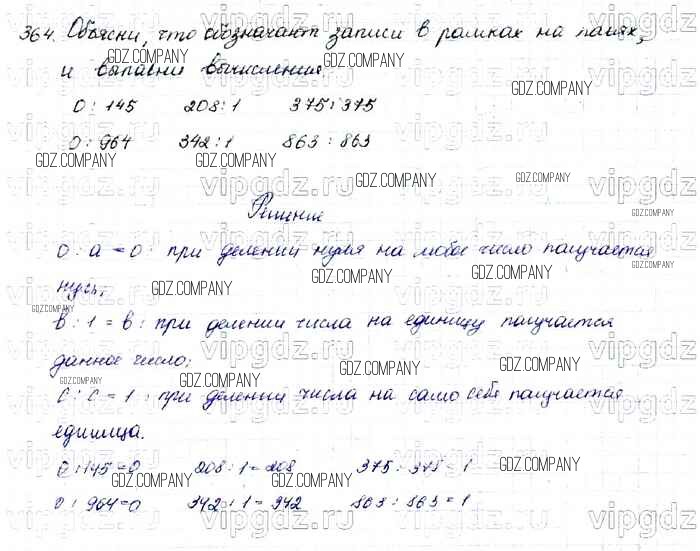 364. Объясни, что обозначают записи в рамках на полях,
и выполни вычисления.
0 : 145 208 : 1 375 : 375
0 : 964 342 : 1 863 : 863
Решение
0 : a = 0 : при делении нуля на любое число получается
нуль;
b : 1 = b : при делении числа на единицу получается
данное число;
c : c = 1 : при делении числа на само себя получается
единица.
0 : 145 = 0 208 : 1 = 208 375 : 375 = 1
0 : 964 = 0 342 : 1 = 342 863 : 863 = 1
GDZ.COMPANY
vipgdz.ru